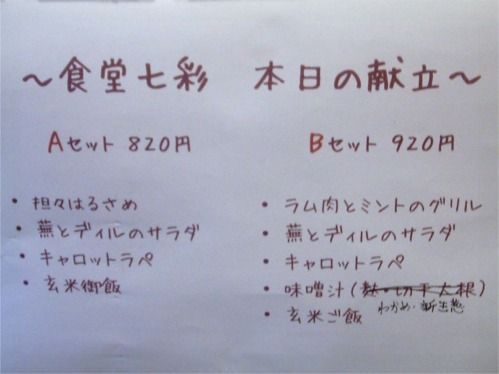 ～食堂七彩 本日の献立～
Aセット 820円
・担々はるさめ
・蕪とディルのサラダ
・キャロットラペ
・玄米御飯
Bセット 920円
・ラム肉とミントのグリル
・蕪とディルのサラダ
・キャロットラペ
・味噌汁(麩・切干大根)
わかめ・新玉葱
・玄米ご飯